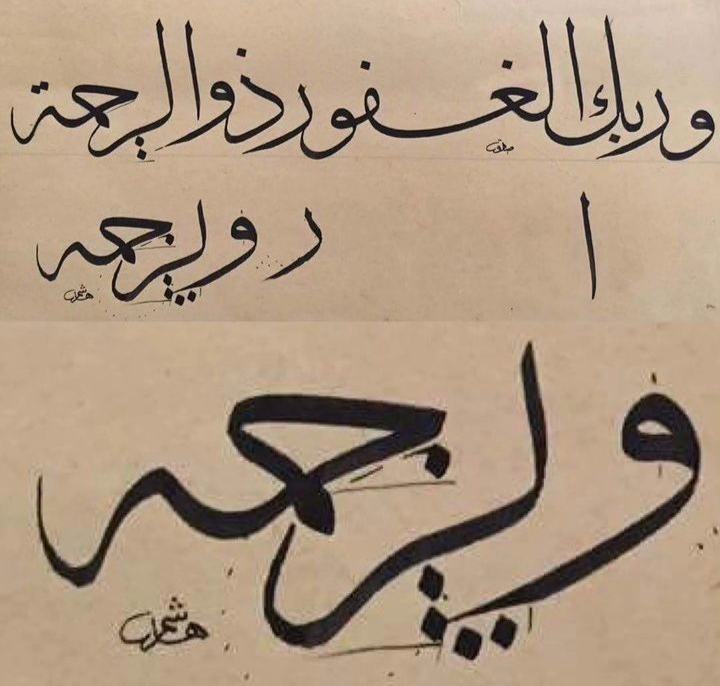 وربك الغفور ذو الرحمة
ا ر و لرحمه
و لرحمه